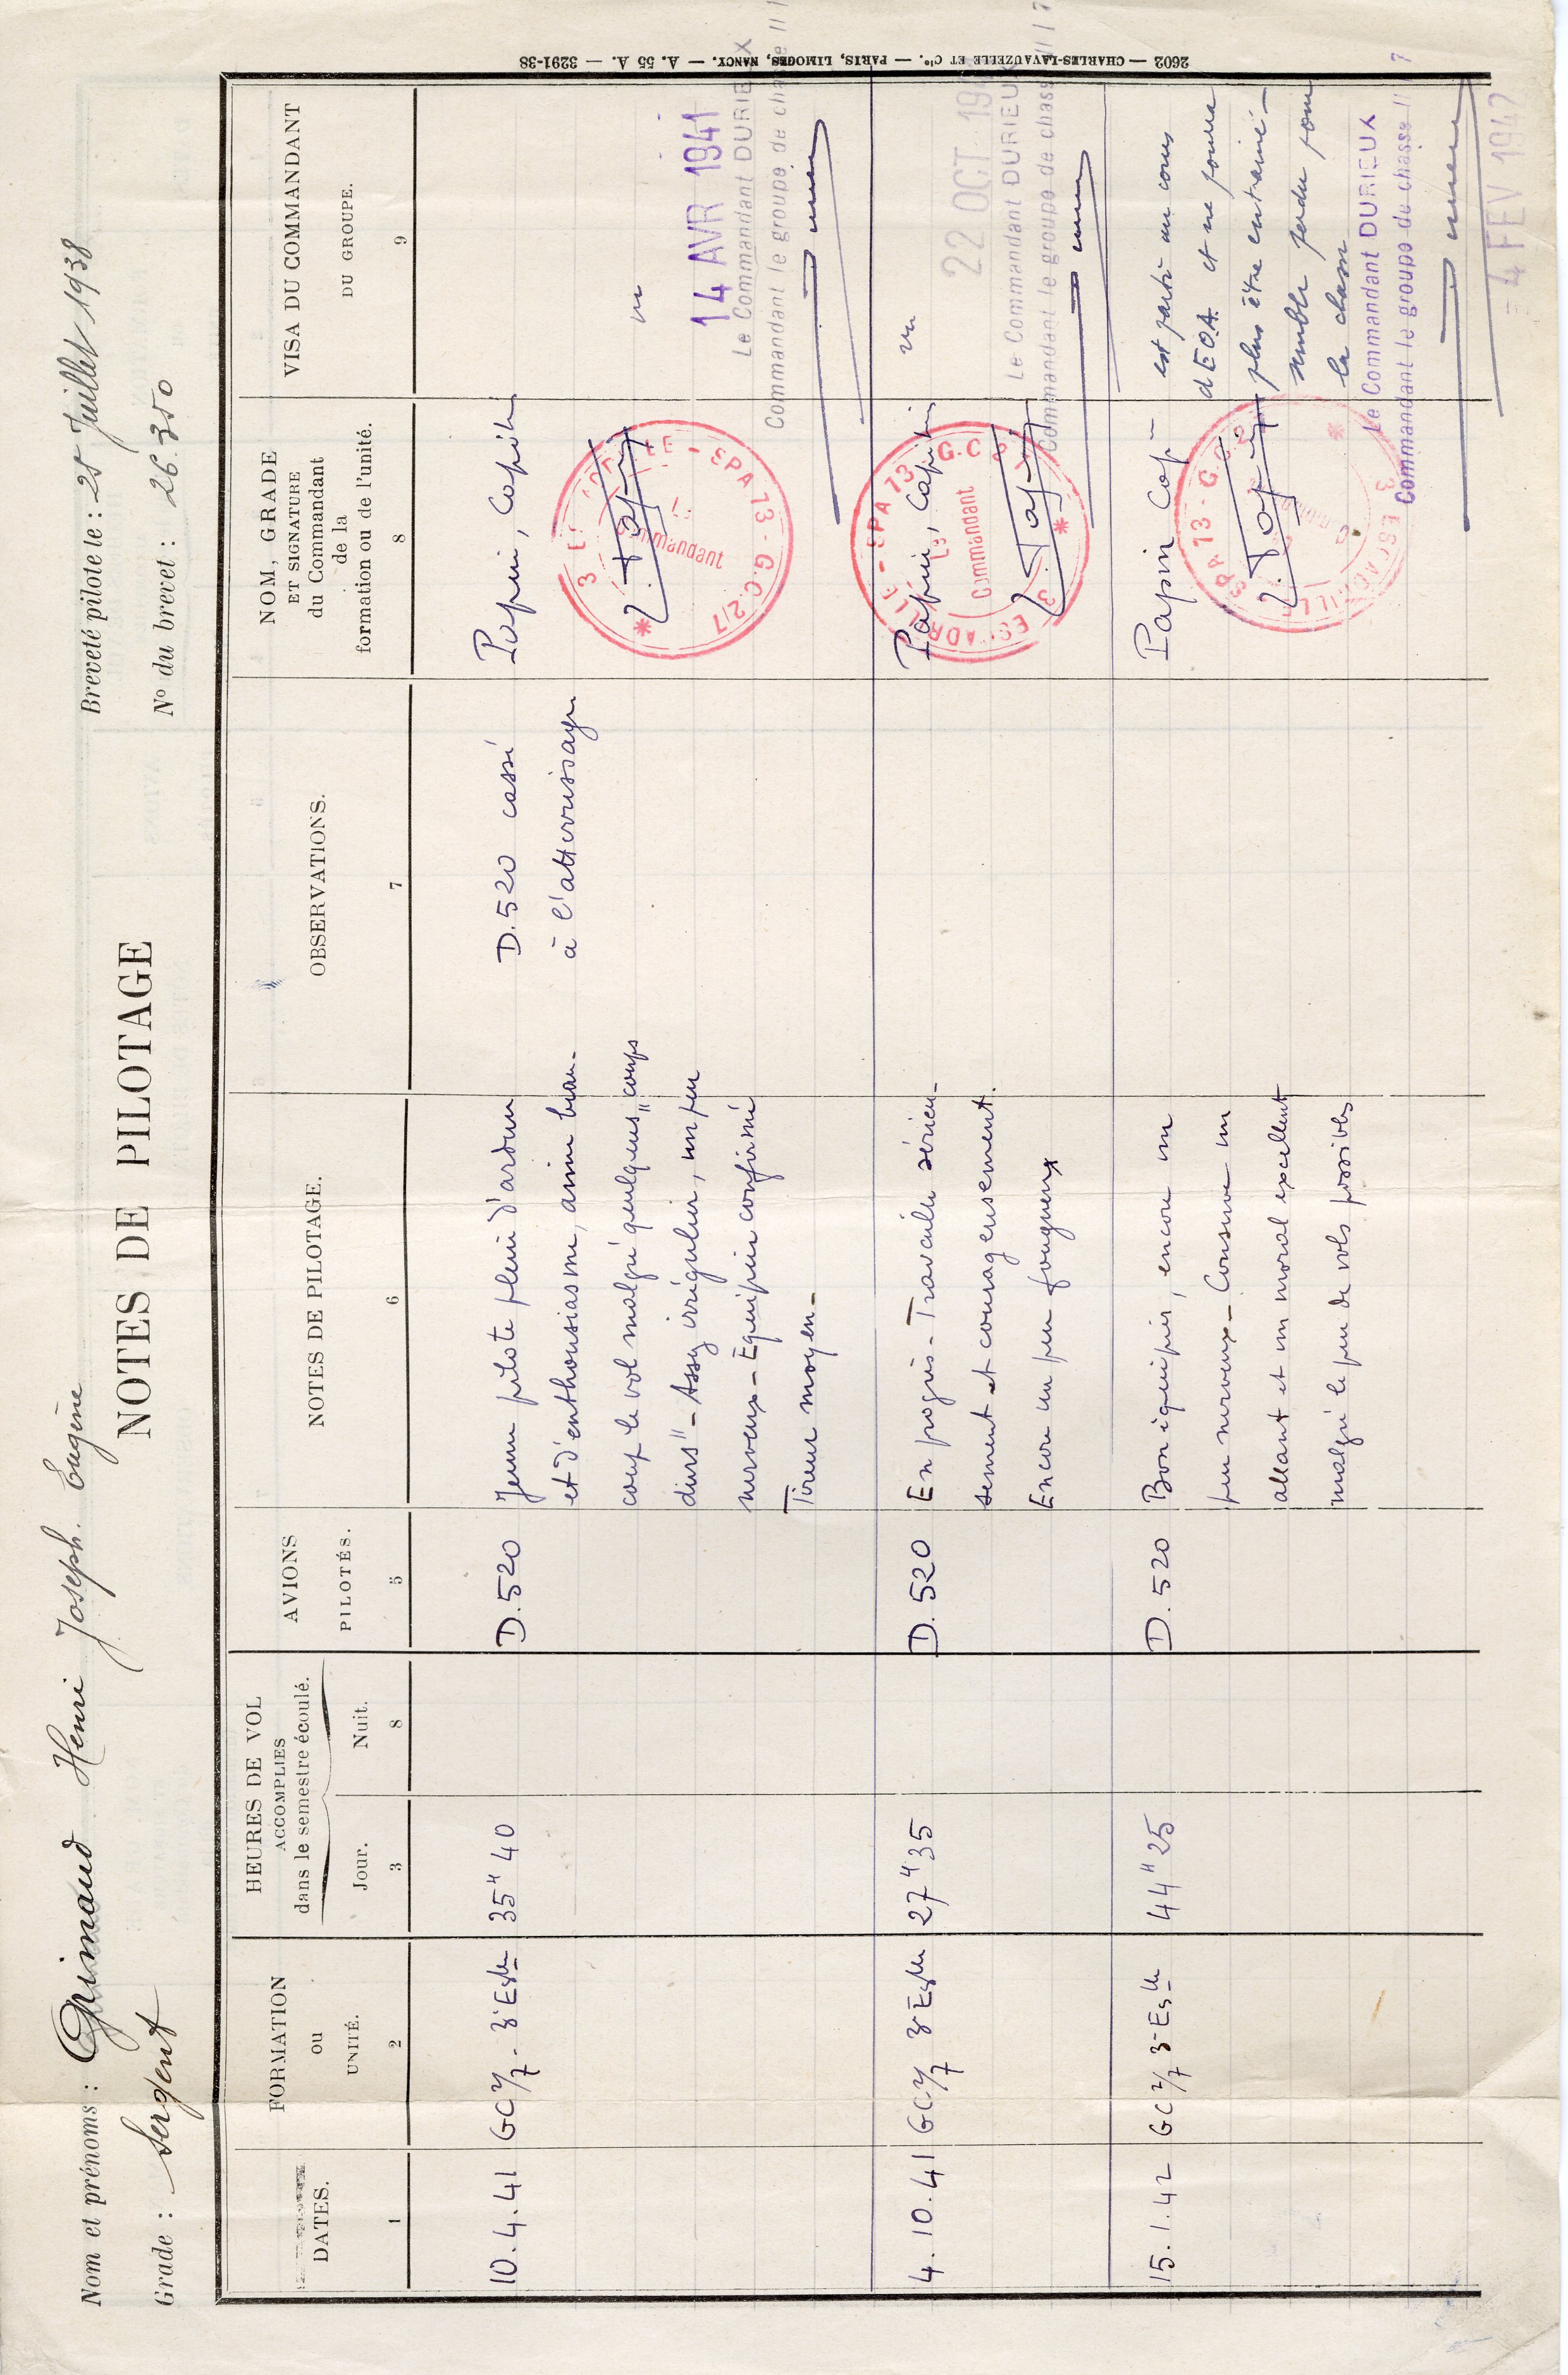 Nom et prénoms : Grimaud Henri Joseph. Eugène
Grade : Sergent
Breveté pilote le : 25 Juillet 1938
N° du brevet : 26.350
NOTES DE PILOTAGE
DATES.
1
FORMATION
ou
UNITÉ.
2
HEURES DE VOL
ACCOMPLIES
dans le semestre écoulé.
Jour.
3
Nuit.
8
AVIONS
PILOTÉS.
5
NOTES DE PILOTAGE.
6
OBSERVATIONS.
7
NOM, GRADE
ET SIGNATURE
du Commandant
de la
formation ou de l'unité.
8
VISA DU COMMANDANT
DU GROUPE.
9
10.4.41
GC 2/7 - 3e Eslle
35H 40
D.520
Jeune pilote plein d'ardeur
et d'enthousiasme, aime beau-
coup le vol malgré quelques "coups
durs" - Assez irrégulier, un peu
nerveux - Equipier confirmé
Tireur moyen -
D.520 cassé
à l'atterrissage
Papin, Capitn
3 ESCADRILLE - SPA 73 - G.C. 2/7
Commandant
Papin
vu
14 AVR 1941
Le Commandant DURIEUX
Commandant le groupe de chasse II
4.10.41
GC 2/7 3e Eslle
27H 35
D.520
En progrès - Travaille sérieu-
sement et courageusement.
Encore un peu fougueux
Papin, Capitn
3 ESCADRILLE - SPA 73 - G.C
Le
Commandant
Papin
vu
22 OCT 194
Le Commandant DURIEUX
Commandant le groupe de chasse II/7
15.1.42
GC 2/7 3e Eslle
44H 25
D.520
Bon équipier, encore un
peu nerveux - Conserve un
allant et un moral excellent
malgré le peu de vols possibles
Papin Cap-
3 ESCADRILLE SPA 73 - G.C.
Papin
est parti au cours
d'EOA et ne pourra
plus être entrainé -
semble perdu pour
la chasse
Le Commandant DURIEUX
Commandant le groupe de chasse II 7
- 4 FEV 1942
2602 — CHARLES-LAVAUZELLE ET Cie. — PARIS, LIMOGES, NANCY. — A. 55 A. — 3291-38